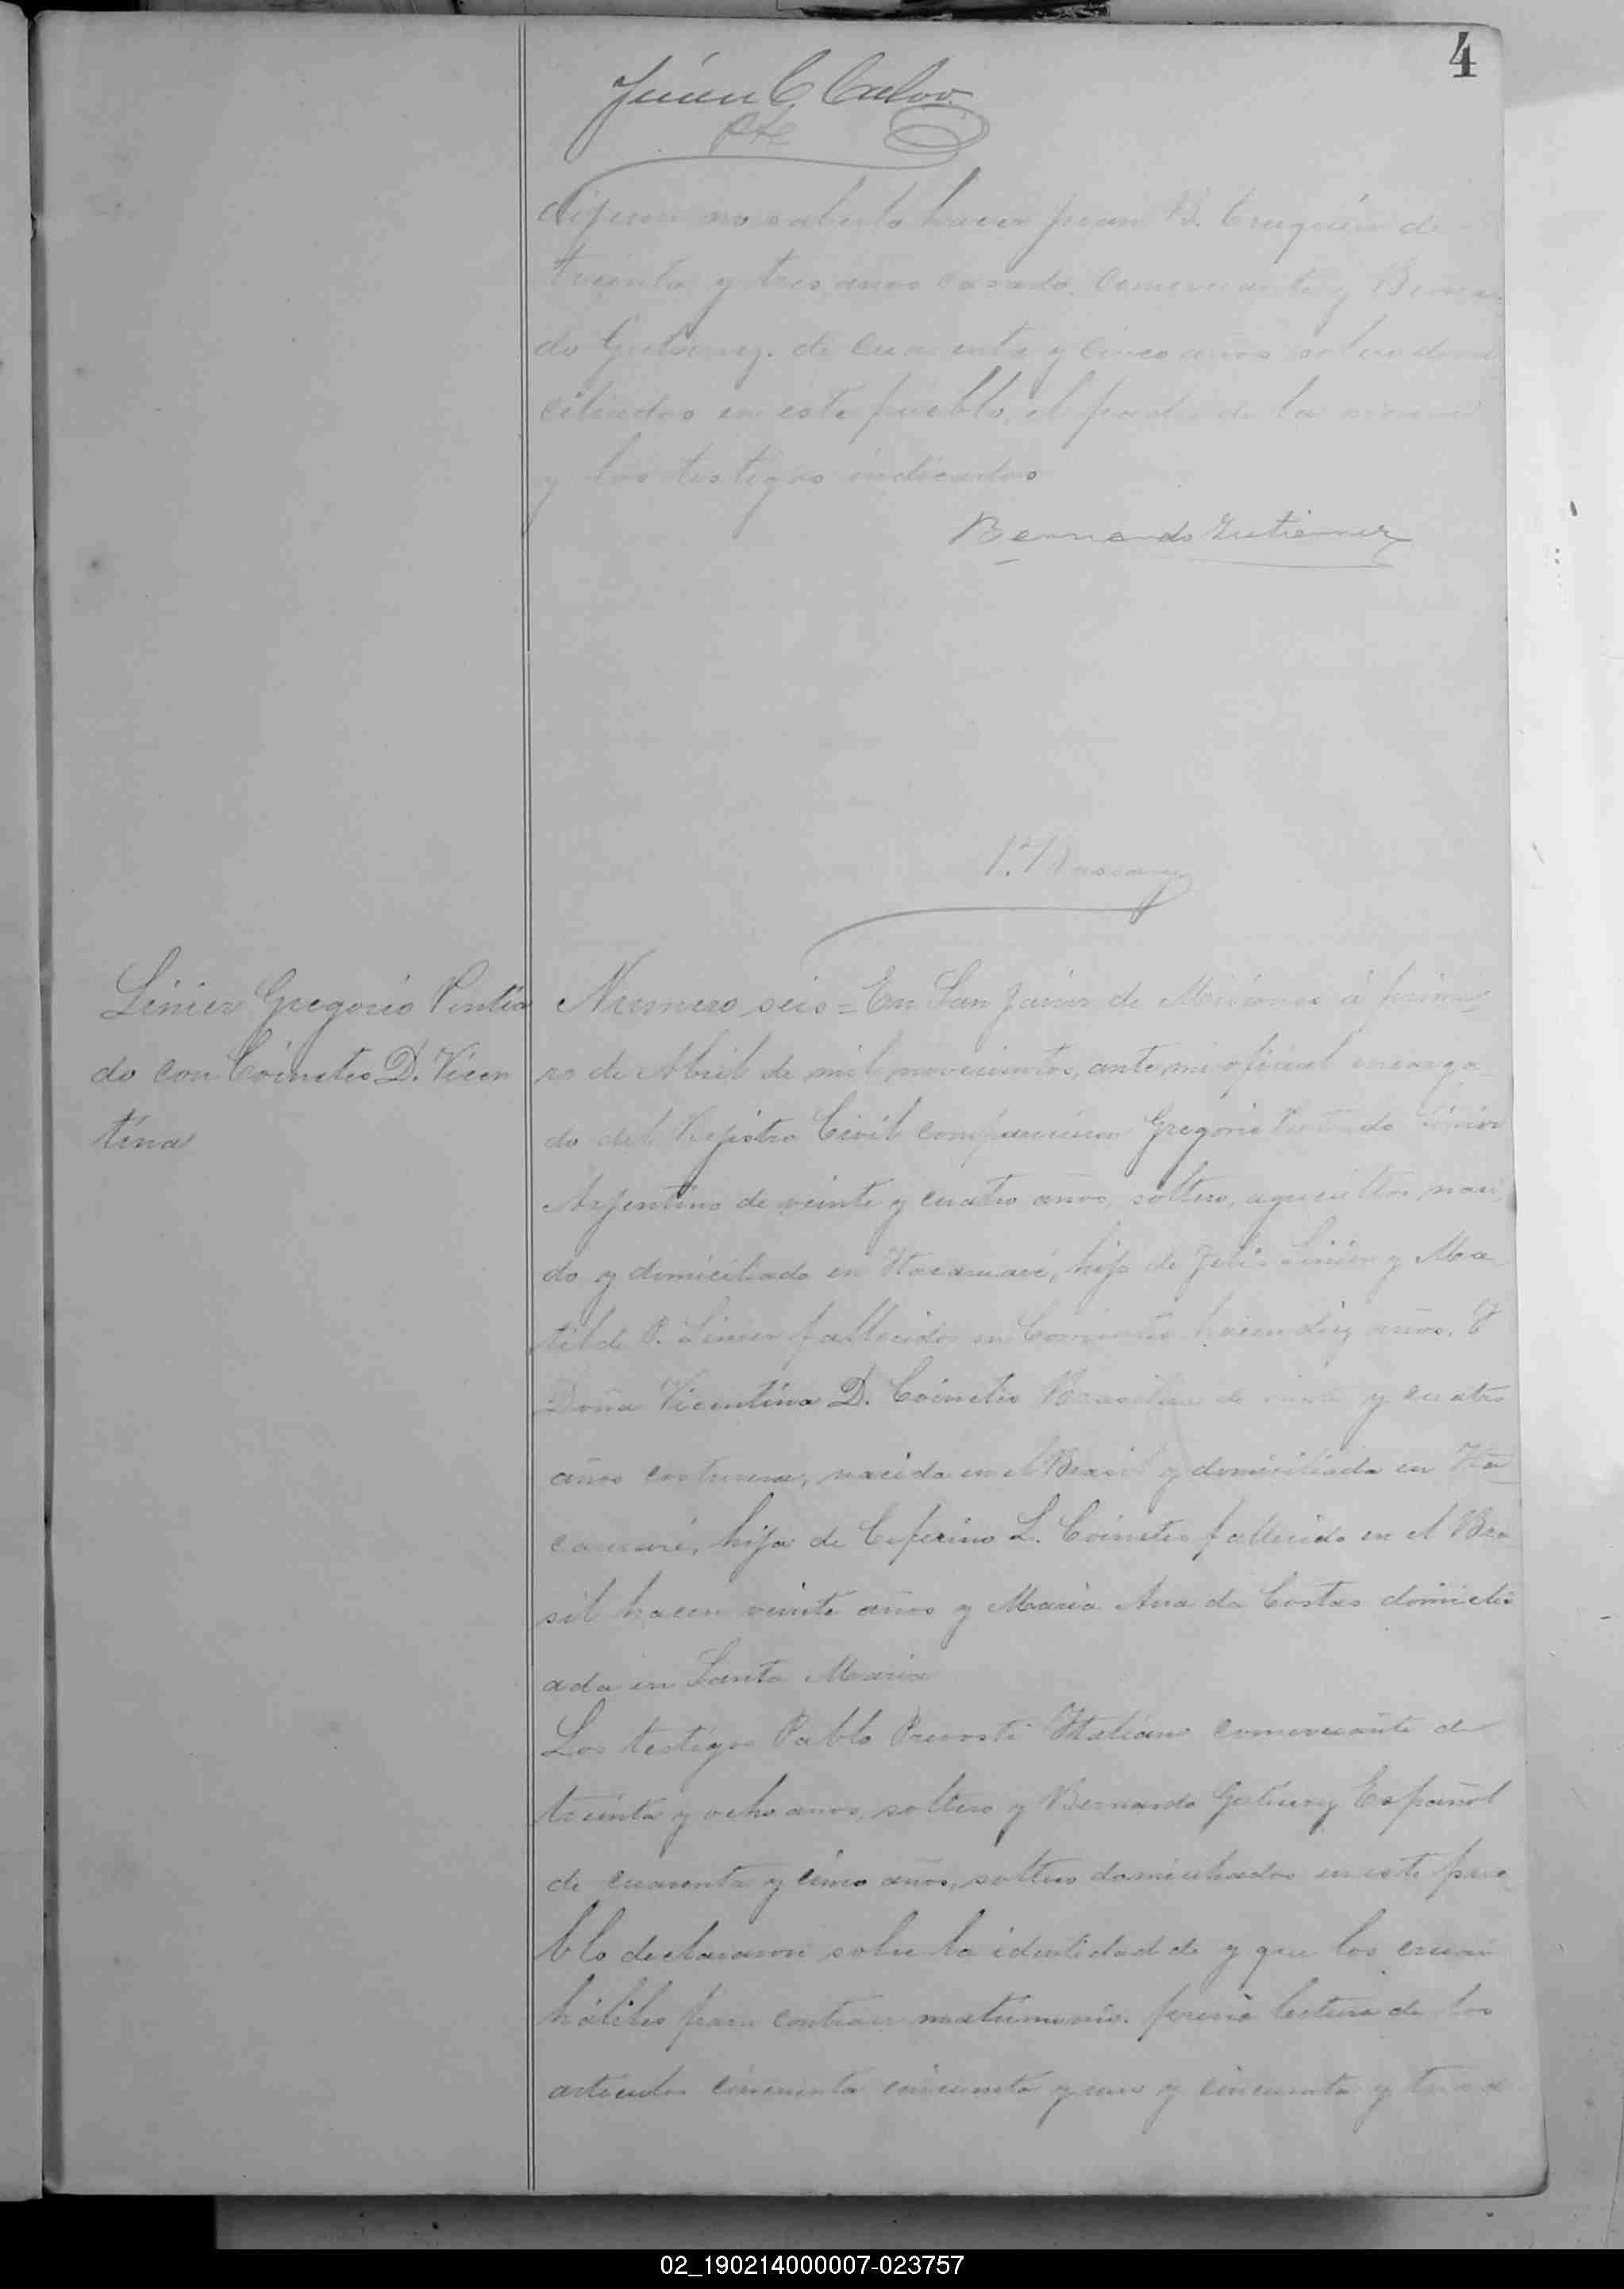 4
Juan C. Calvo
Pte
dijeron no saberlo hacer Juan B. de
treinta y tres años casado, comerciante y Bernar
do Gutierrez. de cuarenta y cinco años soltero domi
ciliados en este pueblo, el padre de la
y los testigos indicados
Bernardo Gutierrez
Linier Gregorio Ventia
do con Coinetes D. Vicen
tina
Numero seis = En San Javier de Misiones á prime
ro de Abril de mil novecientos, ante mi oficial encarga
do del Rejistro Civil comparecieron Gregorio Linier
Arjentino de veinte y cuatro años, soltero, agricultor, naci
do y domiciliado en Itacaruaré, hijo de Felis Linier y Ma
tilde P. Linier fallecidos en Corrientes hacen diez años. Y
Doña Vicentina D. Coinetes Brasilera de veinte y cuatro
años costurera, nacida en el Brasil y domiciliada en Ita
caruaré, hija de Ceferino L. Coinetes fallecido en el Bra
sil hacen veinte años y Maria Ana da Costas domicili
ada en Santa Maria
Los testigos Pablo Prevosti Italiano comerciante de
treinta y ocho años, soltero y Bernardo Gutierrez Español
de cuarenta y cinco años, soltero domiciliados en este pue
blo declararon sobre la identidad de y que los creian
hábiles para contraer matrimonio. previa lectura de los
articulos cincuenta cincuenta y uno y cincuenta y tres de
02_190214000007-023757